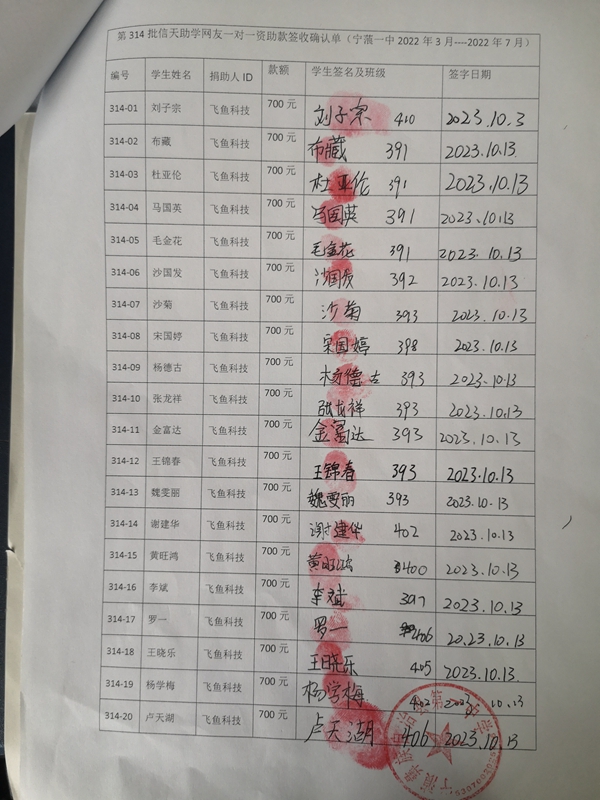 第 314 批信天助学网友一对一资助款签收确认单（宁蒗一中 2022 年 3 月----2022 年 7 月）
编号 学生姓名 捐助人 ID 款额 学生签名及班级 签字日期
314-01 刘子宗 飞鱼科技 700 元 刘子宗 410 2023.10.3
314-02 布藏 飞鱼科技 700 元 布藏 391 2023.10.13.
314-03 杜亚伦 飞鱼科技 700 元 杜亚伦 391 2023.10.13
314-04 马国英 飞鱼科技 700 元 马国英 391 2023.10.13
314-05 毛金花 飞鱼科技 700 元 毛金花 391 2023.10.13
314-06 沙国发 飞鱼科技 700 元 沙国发 392 2023.10.13
314-07 沙菊 飞鱼科技 700 元 沙菊 393 2023.10.13
314-08 宋国婷 飞鱼科技 700 元 宋国婷 398 2023.10.13
314-09 杨德古 飞鱼科技 700 元 杨德古 393 2023.10.13
314-10 张龙祥 飞鱼科技 700 元 张龙祥 393 2023.10.13
314-11 金富达 飞鱼科技 700 元 金富达 393 2023.10.13
314-12 王锦春 飞鱼科技 700 元 王锦春 393 2023.10.13
314-13 魏雯丽 飞鱼科技 700 元 魏雯丽 393 2023.10.13
314-14 谢建华 飞鱼科技 700 元 谢建华 402 2023.10.13
314-15 黄旺鸿 飞鱼科技 700 元 黄旺鸿 400 2023.10.13
314-16 李斌 飞鱼科技 700 元 李斌 397 2023.10.13
314-17 罗一 飞鱼科技 700 元 罗一 406 2023.10.13
314-18 王晓乐 飞鱼科技 700 元 王晓乐 405 2023.10.13.
314-19 杨学梅 飞鱼科技 700 元 杨学梅 402 2023.10.13
314-20 卢天湖 飞鱼科技 700 元 卢天湖 406 2023.10.13